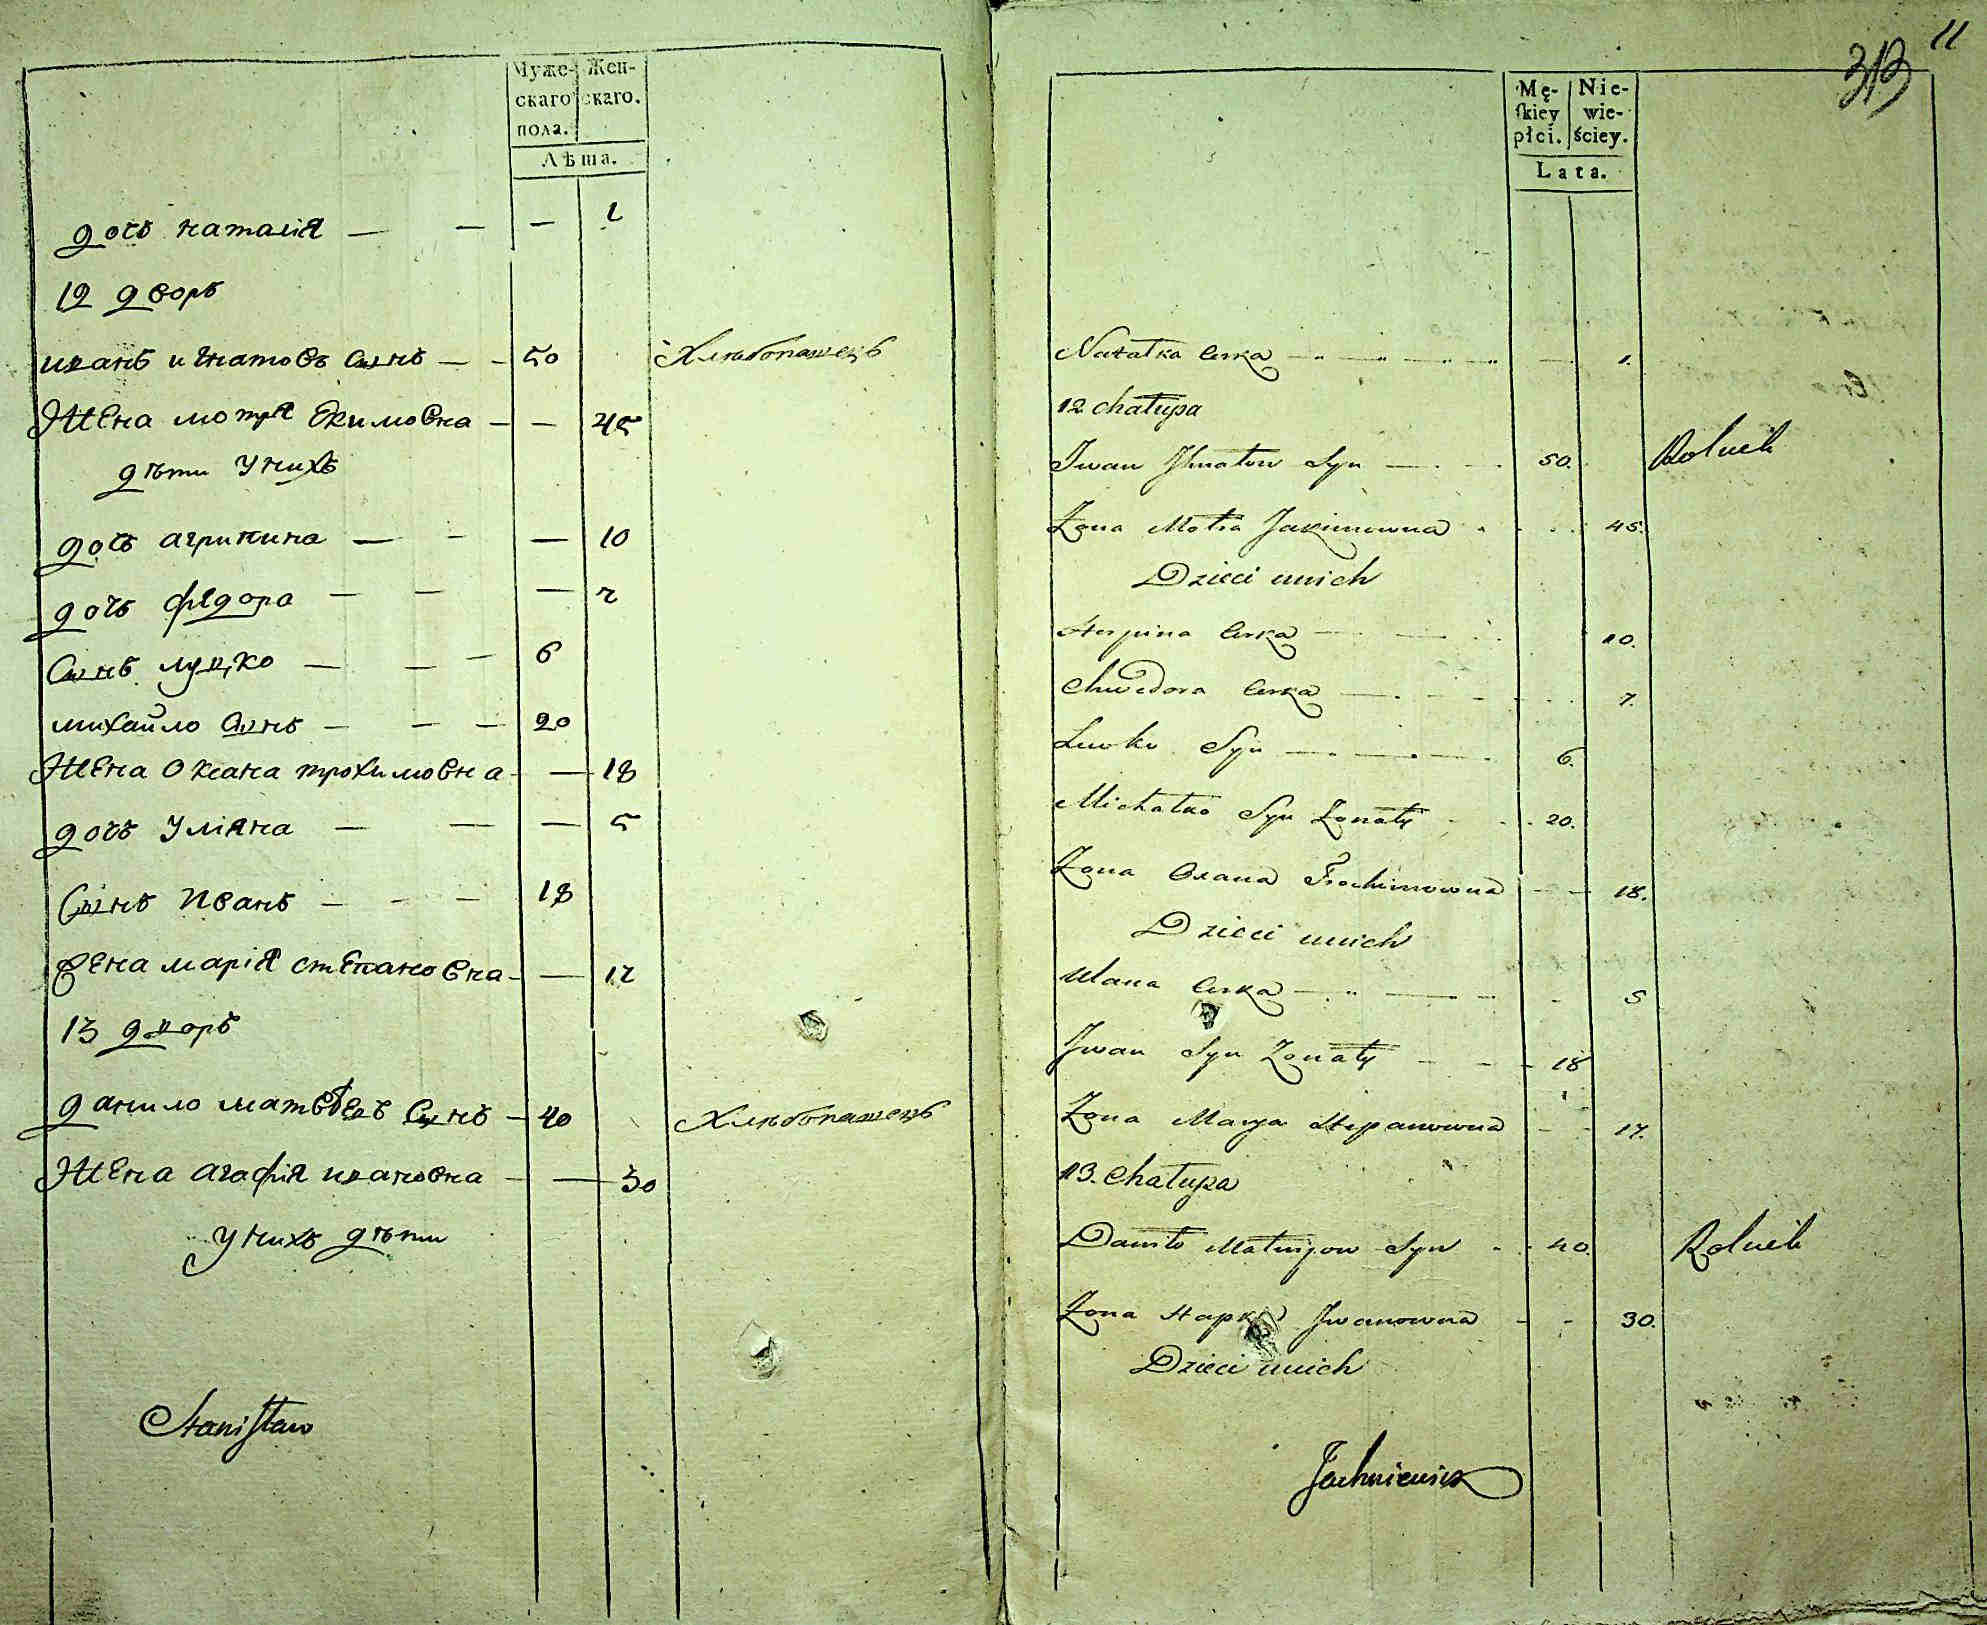 Муже- Жен-
скаго скаго.
пола.
Лѣта.
дочь наталія — — — 1
12 дворъ
иванъ игнатовъ сынъ — — 50 Хлѣбопашецъ
Жена мотря Екимовна — — 45
дѣти у нихъ
дочь агрипина — — — 10
дочь федора — — — 7
Сынъ луцко — — — 6
михайло сынъ — — — 20
Жена Оксана трохимовна — 18
дочь Уліяна — — — 5
Сынъ Иванъ — — — 18
Жена марія степановна — — 17
13 дворъ
данило матвѣевъ сынъ — 40 Хлѣбопашецъ
Жена агафія ивановна — — 30
у нихъ дѣти
Stanisław
11
313
Mę- Nie-
skiey wie-
płci. ściey.
Lata.
Natalka Curka — 1.
12 chałupa
Iwan Ihnatow Syn — 50. Rolnik
Zona Motra Jakimowna 45.
Dzieci unich
Horpina Curka — 10.
Chwedora Curka — 7.
Lucko Syn — 6.
Michałko Syn Zonaty 20.
Zona Oxana Trochimowna — 18.
Dzieci unich
Ulana Curka — 5
Jwan Syn Zonaty — 18
Zona Marya Stepanowna — 17.
13. Chałupa
Daniło Matwijow Syn 40. Rolnik
Zona Hapka Jwanowna — 30.
Dzieci unich
Jachniewicz